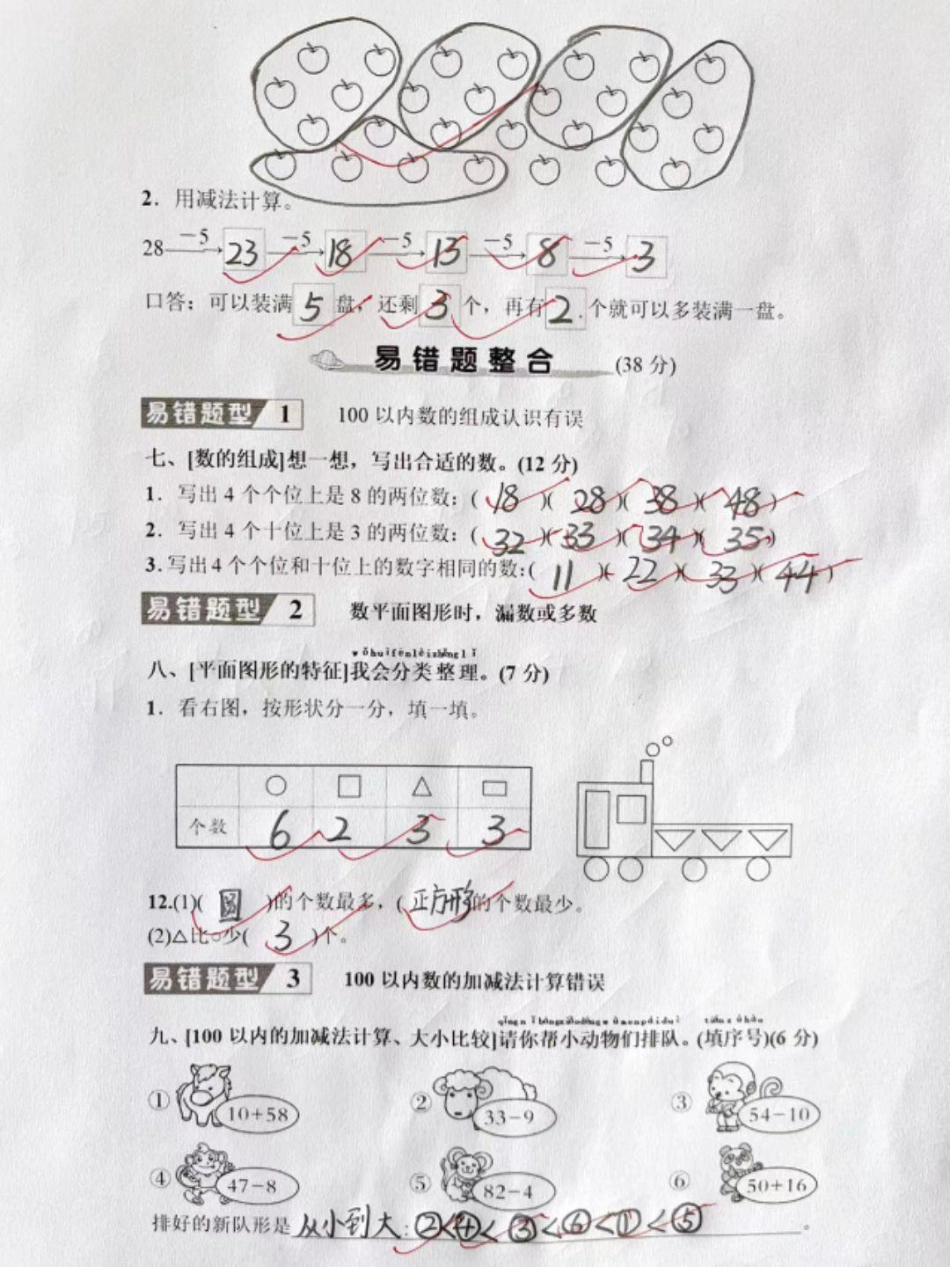 2. 用减法计算。
28 −5→ 23 −5→ 18 −5→ 13 −5→ 8 −5→ 3
口答：可以装满 5 盘，还剩 3 个，再有 2 个就可以多装满一盘。
易错题整合 (38 分)
易错题型 1 100 以内数的组成认识有误
七、[数的组成]想一想，写出合适的数。(12 分)
1. 写出 4 个个位上是 8 的两位数：( 18 )( 28 )( 38 )( 48 )
2. 写出 4 个十位上是 3 的两位数：( 32 )( 33 )( 34 )( 35 )
3. 写出 4 个个位和十位上的数字相同的数：( 11 )( 22 )( 33 )( 44 )
易错题型 2 数平面图形时，漏数或多数
wǒ huì fēn lèi zhěng lǐ
八、[平面图形的特征]我会分类整理。(7 分)
1. 看右图，按形状分一分，填一填。
○ □ △ ▭
个数 6 2 3 3
12.(1)( 圆 )的个数最多，( 正方形 的个数最少。
(2)△比○少( 3 )个。
易错题型 3 100 以内数的加减法计算错误
qǐng nǐ bāng xiǎo dòng wù men pái duì tián xù hào
九、[100 以内的加减法计算、大小比较]请你帮小动物们排队。(填序号)(6 分)
① 10+58 ② 33−9 ③ 54−10
④ 47−8 ⑤ 82−4 ⑥ 50+16
排好的新队形是 从小到大：②<④<③<⑥<①<⑤ 。